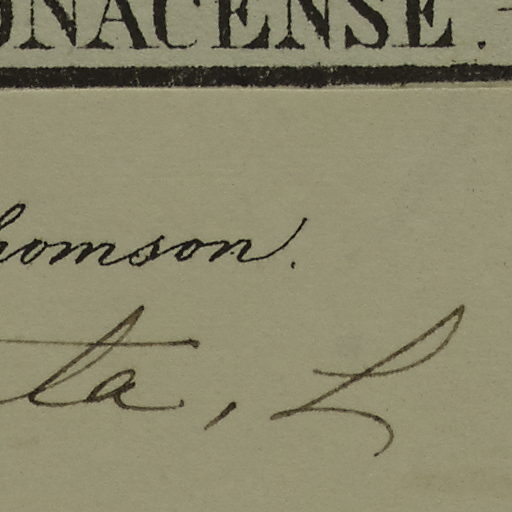 ONACENSE.
homson.
ta, L